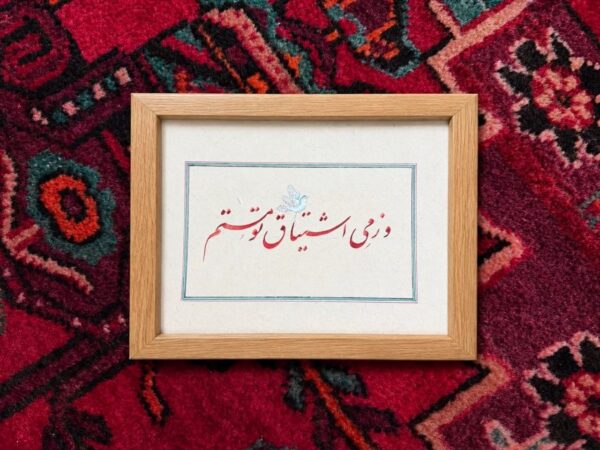 وز می اشتیاق تو مستم